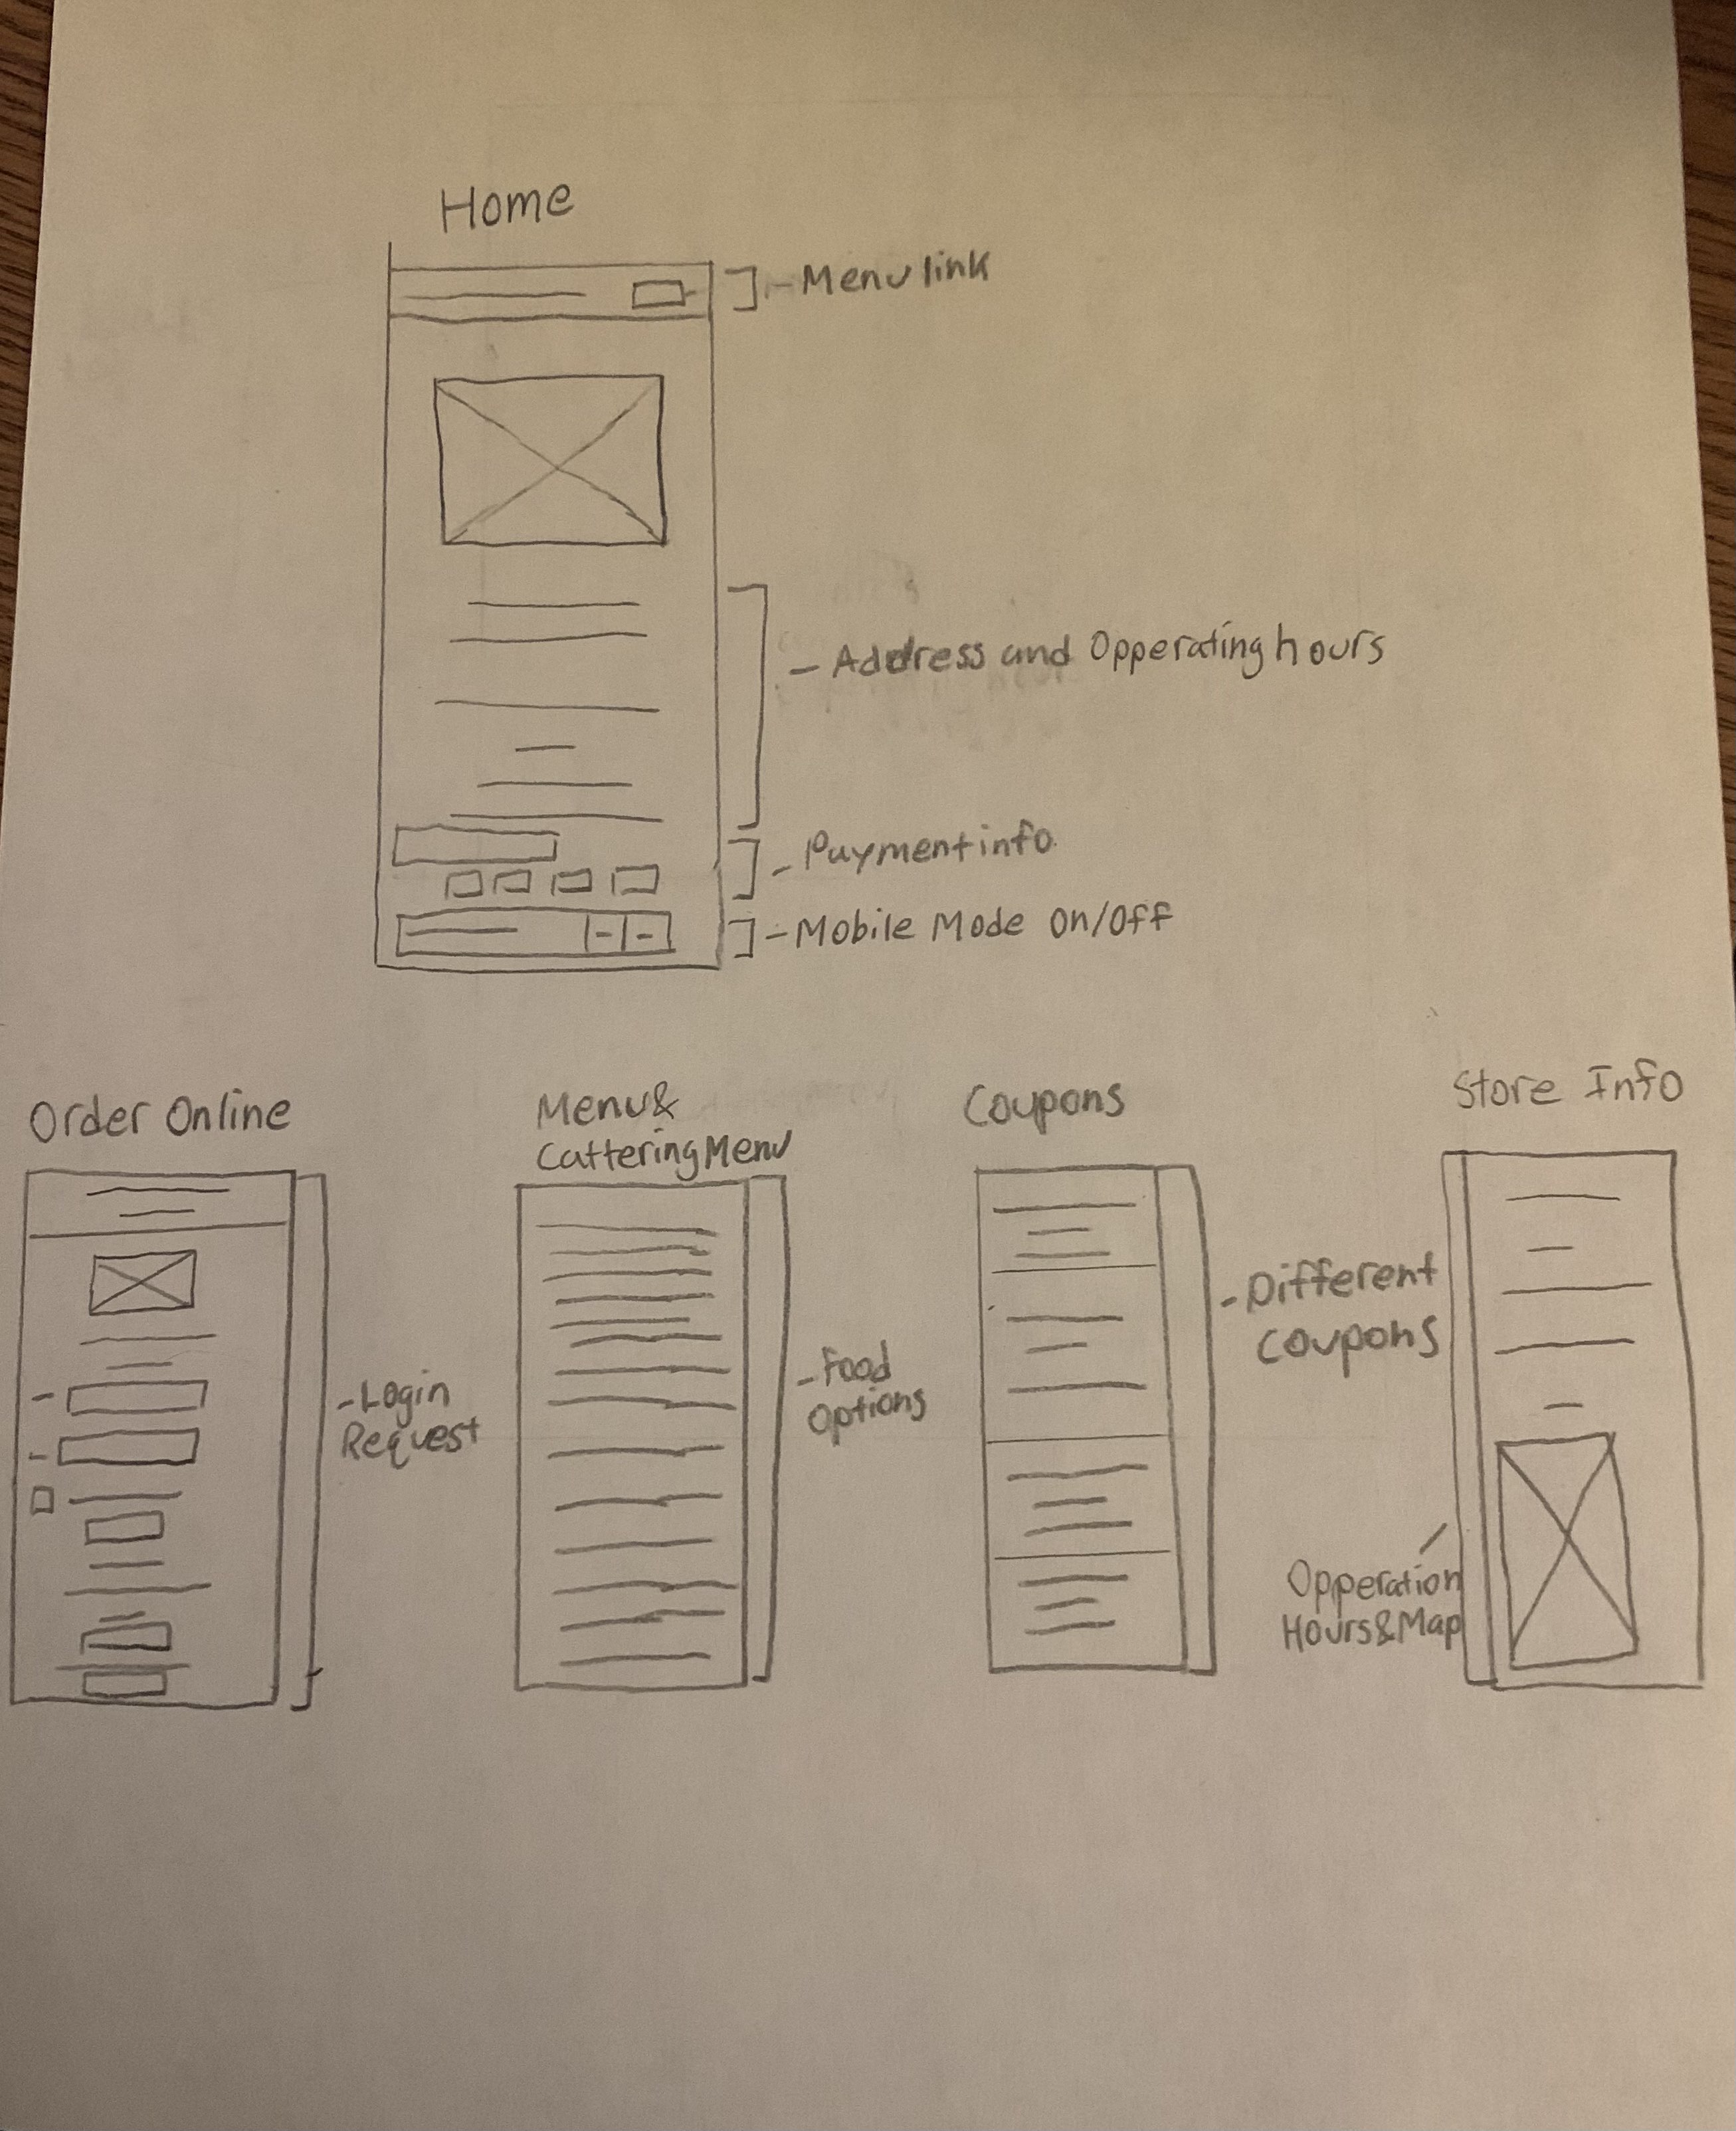 Home
- Menu link
- Address and Opperating hours
- Payment info
- Mobile Mode On/Off
Order Online
- Login
Request
Menu &
Cattering Menu
- Food
Options
Coupons
- Different
Coupons
Store Info
Opperation
Hours & Map